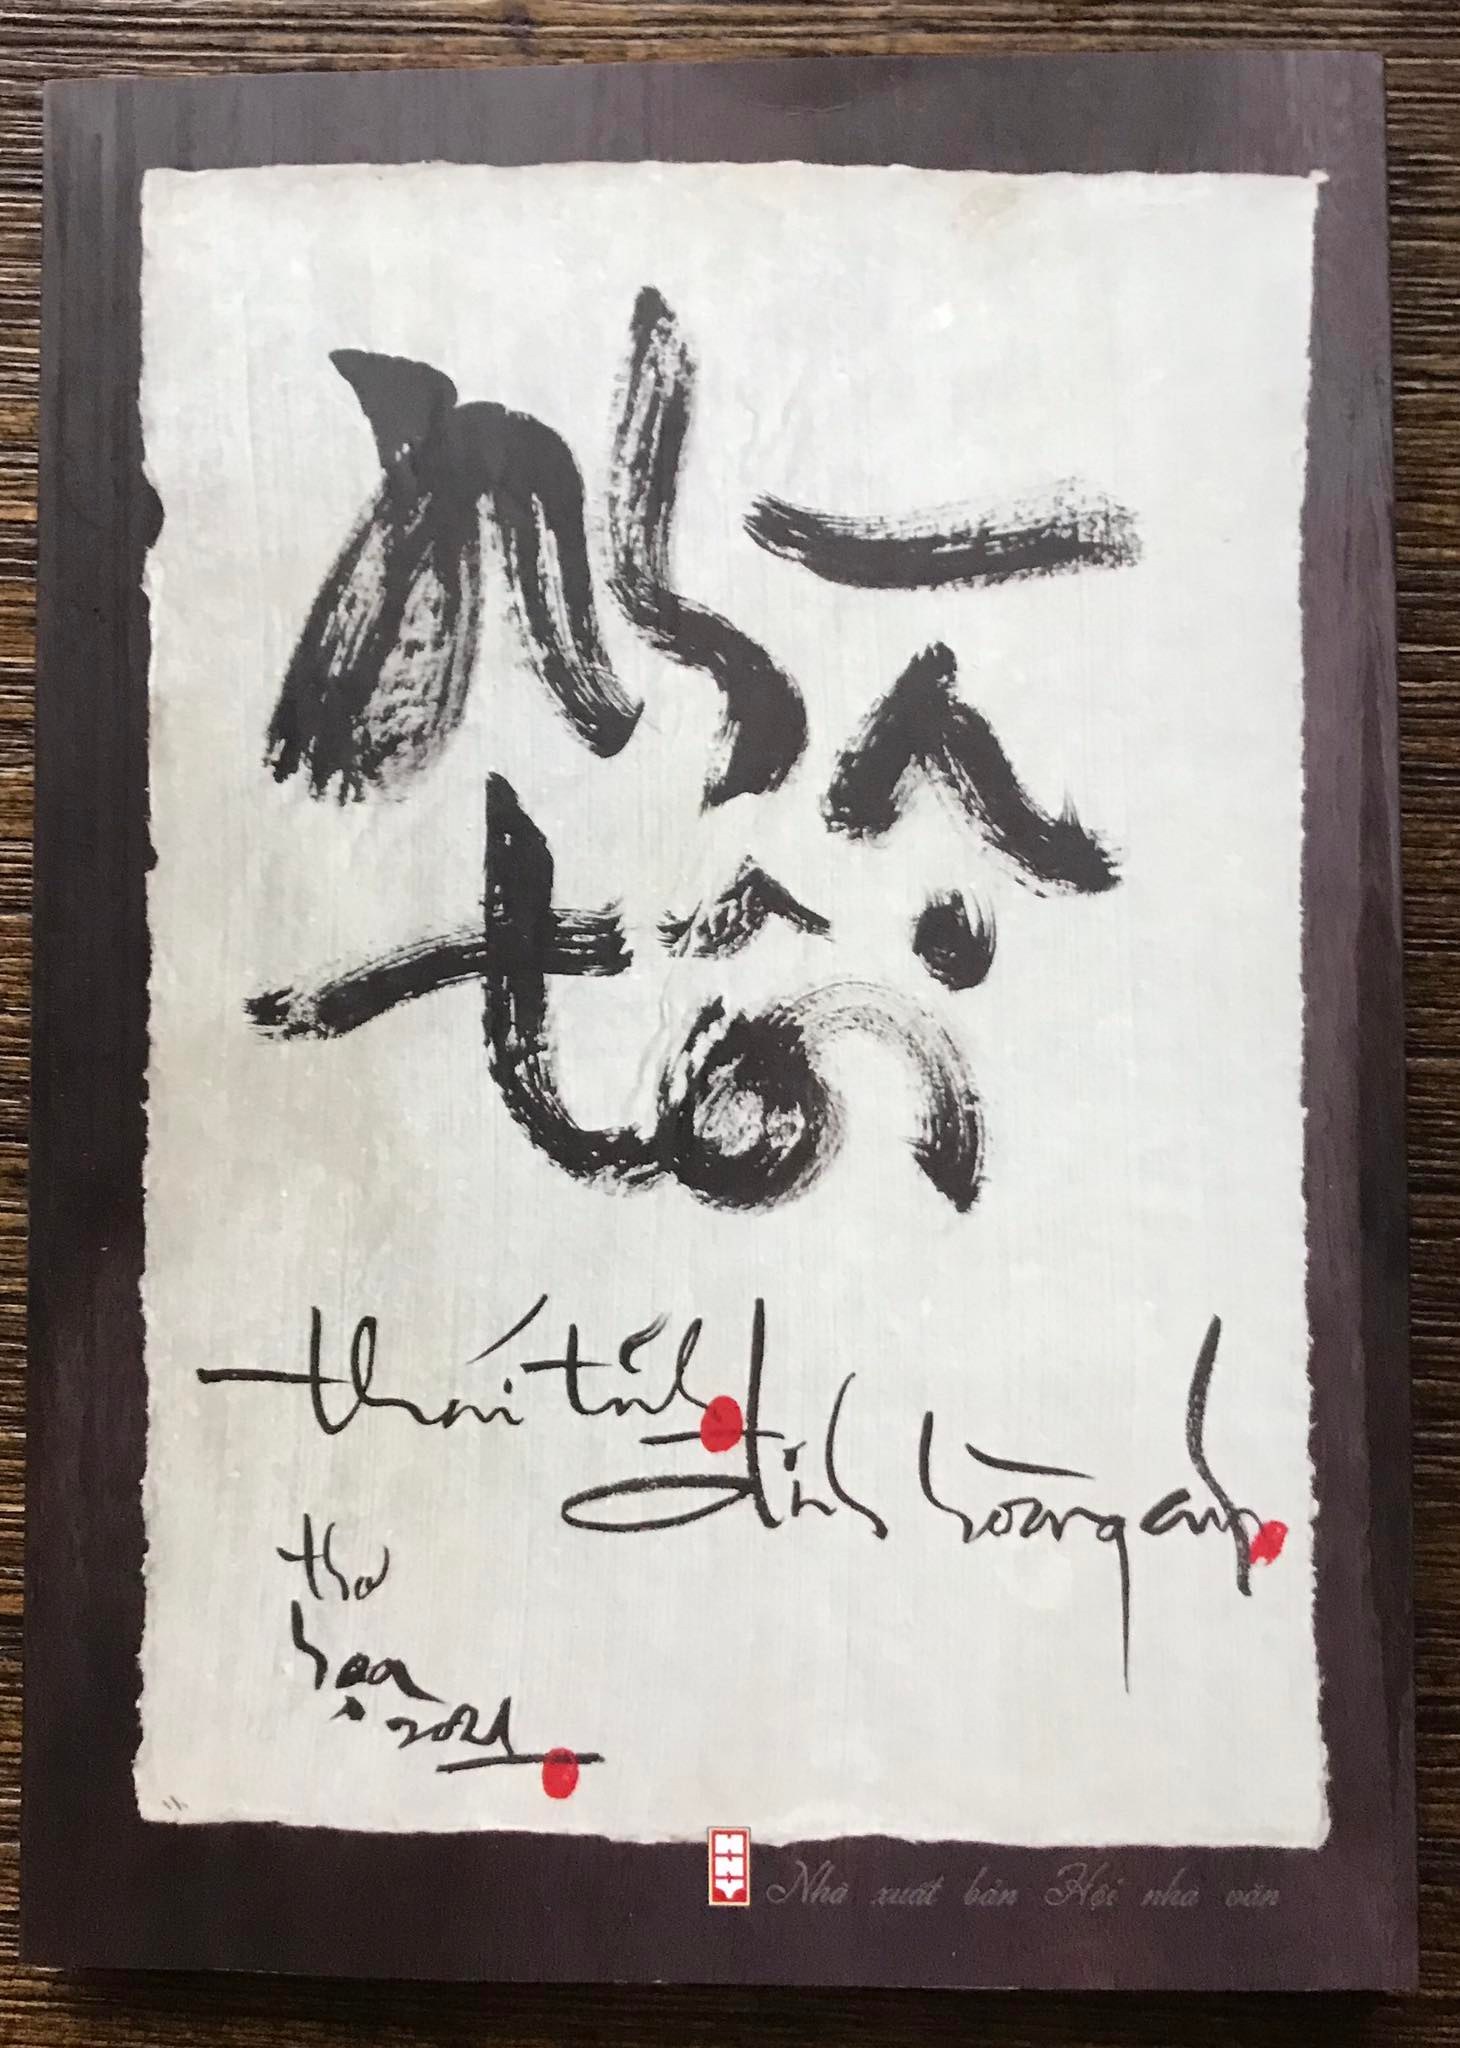 tôi
thái tĩnh
đinh hoàng anh
thơ
họa
2021
HNV
Nhà xuất bản Hội nhà văn